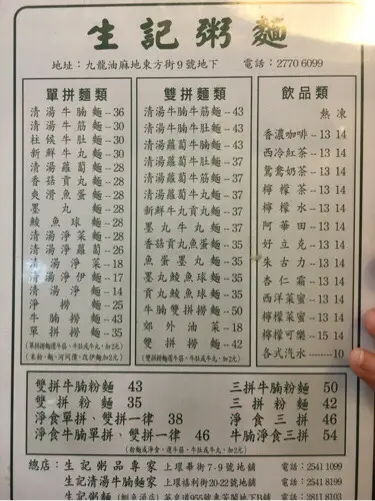 生記粥麵
地址：九龍油麻地東方街9號地下 電話：2770 6099
單拼麵類
清湯牛腩麵--36
清湯牛筋麵--30
柱候牛肚麵--30
新鮮牛丸麵--28
清湯蘿蔔麵--28
香菇貢丸麵--28
爽滑魚蛋麵--28
墨丸麵--28
鯪魚球麵--28
清湯淨菜麵--28
清湯淨蘿蔔--26
清湯淨菜--18
清湯淨伊麵--17
清湯淨麵--14
淨撈麵--25
牛腩撈麵--43
單拼撈麵--35
雙拼麵類
清湯牛腩牛筋麵--43
清湯牛腩牛肚麵--43
清湯蘿蔔牛腩麵--43
清湯牛筋牛肚麵--37
清湯蘿蔔牛筋麵--37
清湯蘿蔔牛肚麵--37
清湯蘿蔔牛丸麵--37
新鮮牛丸貢丸麵--37
墨丸牛丸麵--37
香菇貢丸魚蛋麵--35
魚蛋墨丸麵--35
墨丸鯪魚球麵--35
貢丸鯪魚球麵--35
牛腩雙拼撈麵--50
郊外油菜--18
雙拼撈麵--42
飲品類
熱 凍
香濃咖啡--13 14
西冷紅茶--13 14
鴛鴦奶茶--13 14
檸檬茶--13 14
檸檬水--13 14
阿華田--13 14
好立克--13 14
朱古力--13 14
杏仁霜--13 14
西洋菜蜜--13 14
檸檬菜蜜--13 14
檸檬可樂--15 14
各式汽水------10
雙拼牛腩粉麵 43
雙拼粉麵 35
淨食單拼、雙拼一律 38
淨食牛腩單拼、雙拼一律 46
三拼牛腩粉麵 50
三拼粉麵 42
淨食三拼 46
牛腩淨食三拼 54
總店：生記粥品專家 上環畢街7-9號地舖 電話：2541 1099
生記清湯牛腩麵家 上環禧利街20-22號地舖 電話：2541 8199